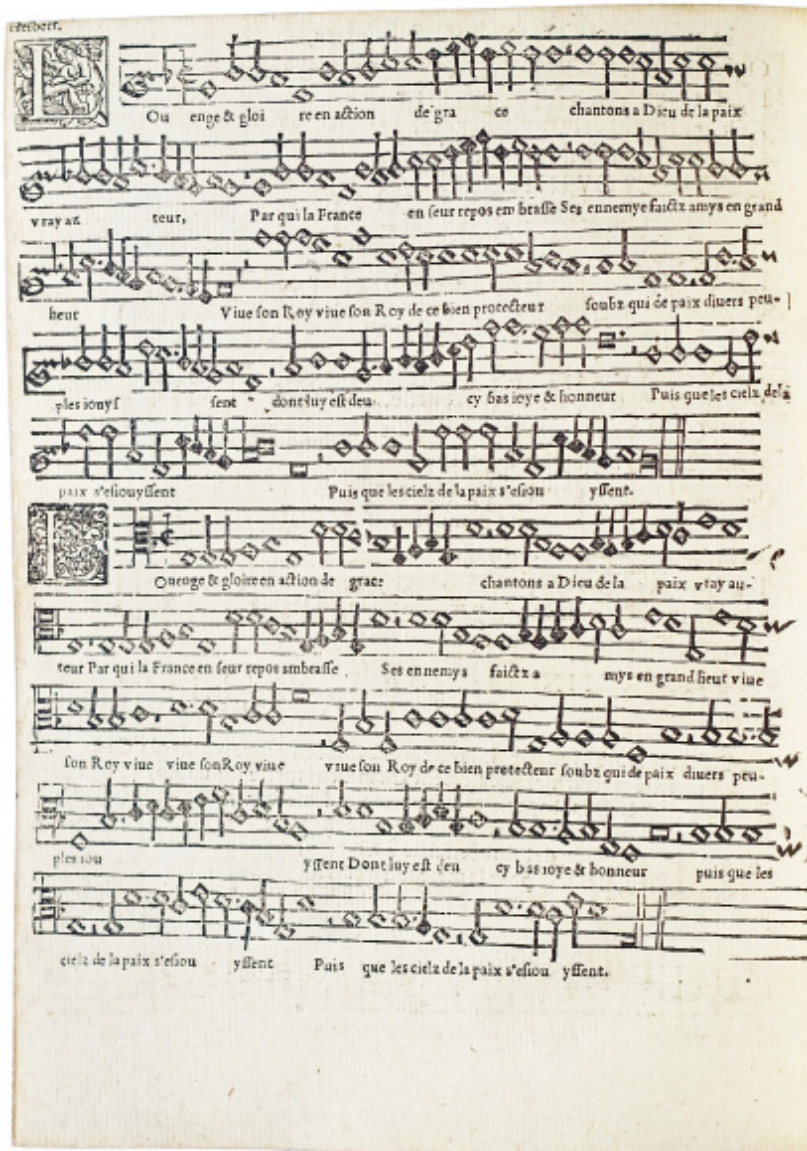 L
Ou enge & gloi re en action de gra ce chantons a Dieu de la paix
vray au teur, Par qui la France en seur repos em brasse Ses ennemys faictz amys en grand
heur Viue son Roy viue son Roy de ce bien protecteur soubz qui de paix diuers peu-
ples iouys sent dont luy est deu cy bas ioye & honneur Puis que les cielz de la
paix s'esiouyssent Puis que les cielz de la paix s'esiou yssent.
L
Ouenge & gloire en action de grace chantons a Dieu de la paix vray au-
teur Par qui la France en seur repos ambrasse Ses ennemys faictz a mys en grand heur viue
son Roy viue viue son Roy viue viue son Roy de ce bien protecteur soubz qui de paix diuers peu-
ples iou yssent Dont luy est deu cy bas ioye & honneur puis que les
cielz de la paix s'esiou yssent Puis que les cielz de la paix s'esiou yssent.